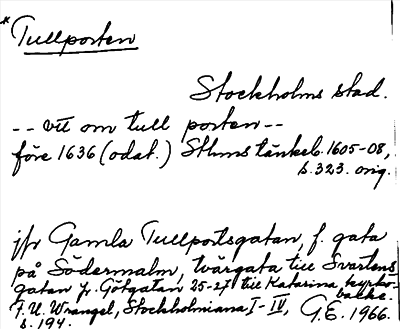 * Tullporten
Stockholms stad.
-- vtt om tull porten --
före 1636 (odat.) Sthms tänkeb. 1605-08,
s. 323. orig.
jfr Gamla Tullportsgatan, f. gata
på Södermalm, tvärgata till Svartens
gatan fr. Götgatan 25-27 till Katarina kyrko-
backe.
F. U. Wrangel, Stockholmiana I-IV,
s. 194.
G.E. 1966.